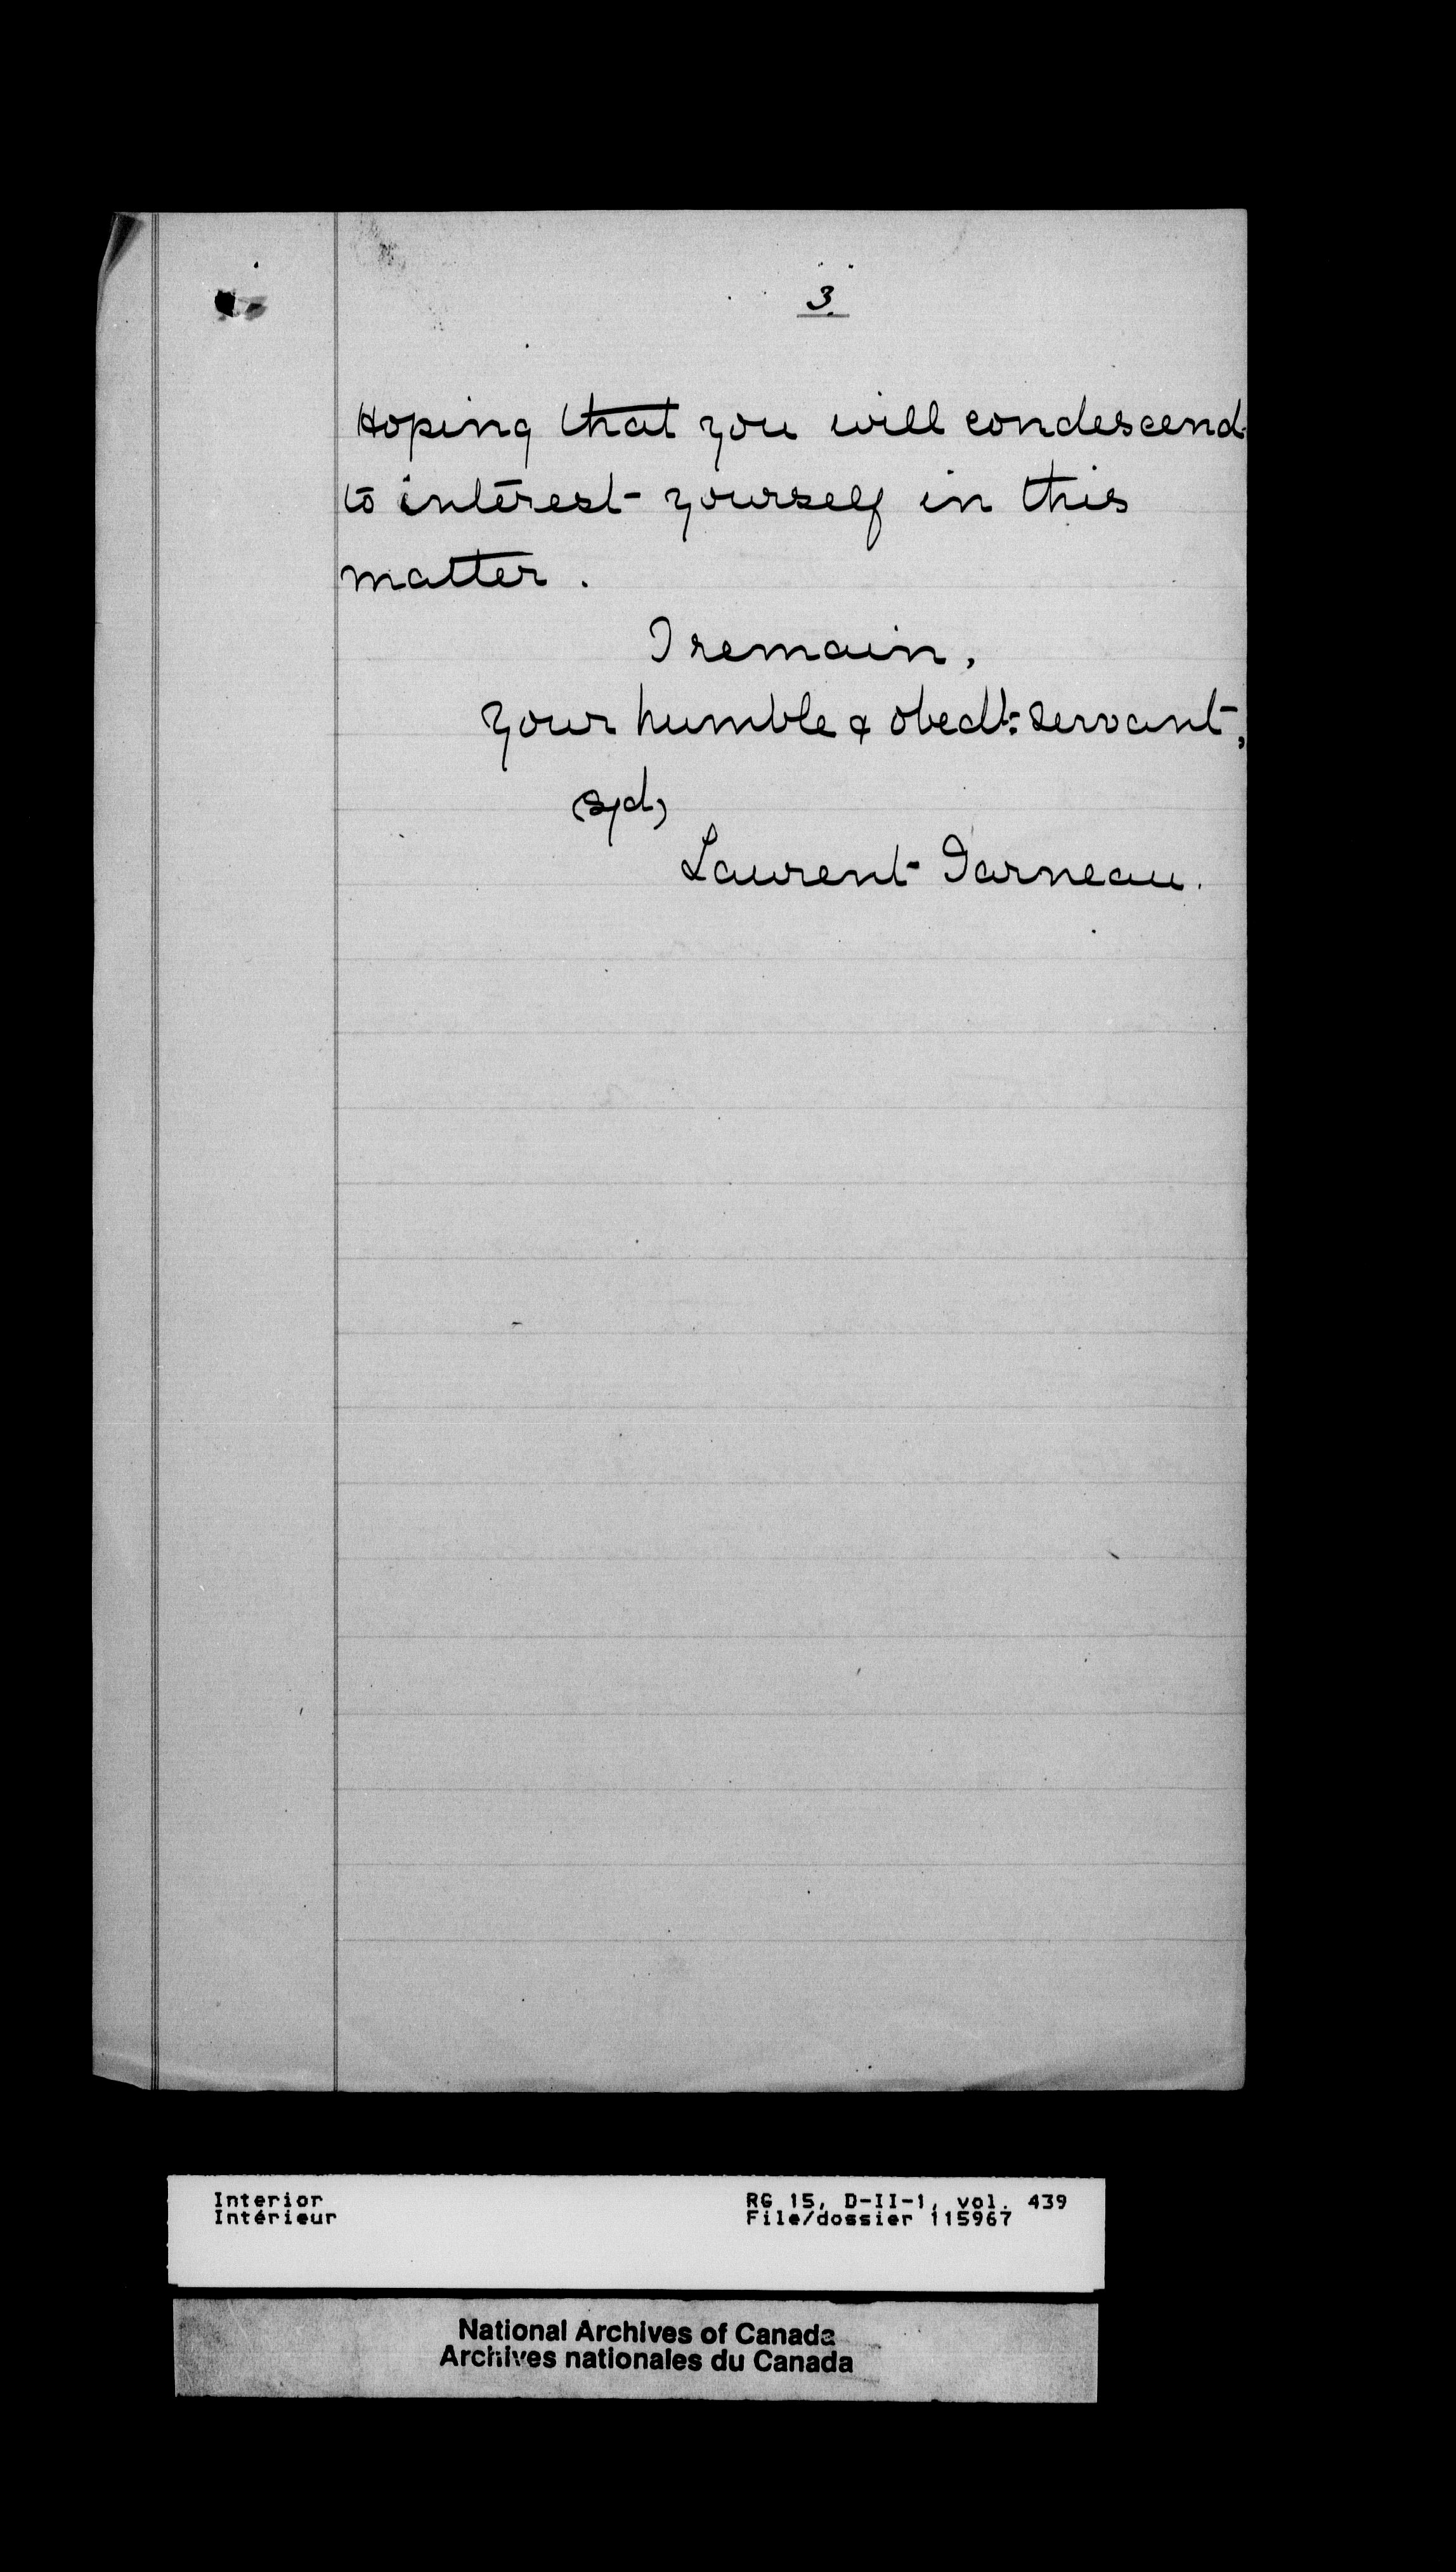 3.
Hoping that you will condescend
to interest yourself in this
matter.
I remain,
Your humble & obedt: servant,
(sgd)
Laurent Garneau.
Interior
Intérieur
RG 15, D-II-1, vol. 439
File/dossier 115967
National Archives of Canada
Archives nationales du Canada